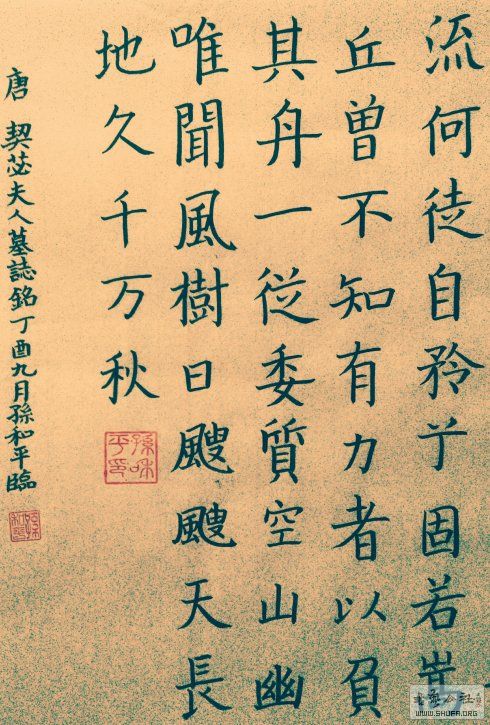 流何徒自矜于固若
丘曾不知有力者以負
其舟一従委質空山幽
唯聞風樹日颼颼天長
地久千万秋
孫和平印
唐 契苾夫人墓誌銘丁酉九月孫和平臨
WWW.SHUFA.ORG